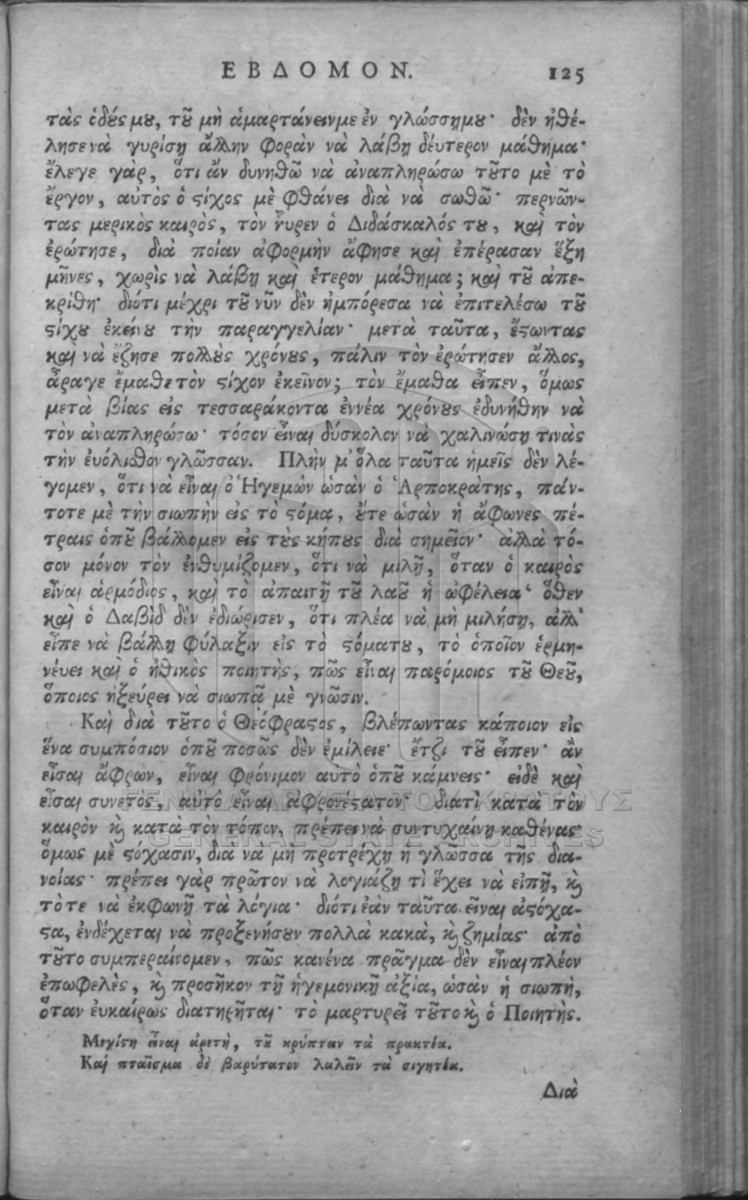 ΕΒΔΟΜΟΝ. 125
τὰς ὁδούς μου, τοῦ μὴ ἁμαρτάνεινμε ἐν γλώσσῃμου· δὲν ἠθέ-
λησε νὰ γυρίσῃ ἄλλην φορὰν νὰ λάβῃ δεύτερον μάθημα·
ἔλεγε γὰρ, ὅτι ἂν δυνηθῶ νὰ ἀναπληρώσω τοῦτο μὲ τὸ
ἔργον, αὐτὸς ὁ ϛίχος μὲ φθάνει διὰ νὰ σωθῶ· περνῶν-
τας μερικὸς καιρὸς, τὸν ηὗρεν ὁ Διδάσκαλός του, καὶ τὸν
ἐρώτησε, διὰ ποίαν ἀφορμὴν ἄφησε καὶ ἐπέρασαν ἕξη
μῆνες, χωρὶς νὰ λάβῃ καὶ ἕτερον μάθημα; καὶ τοῦ ἀπε-
κρίθη· διότι μέχρι τοῦ νῦν δὲν ἠμπόρεσα νὰ ἐπιτελέσω τοῦ
ϛίχου ἐκείνου τὴν παραγγελίαν· μετὰ ταῦτα, ἔϛωντας
καὶ νὰ ἔζησε πολλοὺς χρόνους, πάλιν τὸν ἐρώτησεν ἄλλος,
ἆραγε ἔμαθε τὸν ϛίχον ἐκεῖνον; τὸν ἔμαθα εἶπεν, ὅμως
μετὰ βίας εἰς τεσσαράκοντα ἐννέα χρόνους ἐδυνήθην νὰ
τὸν ἀναπληρώσω· τόσον εἶναι δύσκολον νὰ χαλινώσῃ τινὰς
τὴν ἐυόλισθον γλῶσσαν. Πλὴν μ' ὅλα ταῦτα ἡμεῖς δὲν λέ-
γομεν, ὅτι νὰ εἶναι ὁ Ἡγεμὼν ὡσὰν ὁ Ἁρποκράτης, πάν-
τοτε μὲ τὴν σιωπὴν εἰς τὸ ϛόμα, οὔτε ὡσὰν ἡ ἄφωνες πέ-
τραις ὁποῦ βάλλομεν εἰς τοὺς κήπους διὰ σημεῖον· ἀλλὰ τό-
σον μόνον τὸν ἐνθυμίζομεν, ὅτι νὰ μιλῇ, ὅταν ὁ καιρὸς
εἶναι ἁρμόδιος, καὶ τὸ ἀπαιτῇ τοῦ λαοῦ ἡ ὠφέλεια· ὅθεν
καὶ ὁ Δαβὶδ δὲν ἐδιώρισεν, ὅτι πλέα νὰ μὴ μιλήσῃ, ἀλλ'
εἶπε νὰ βάλλῃ φύλαξιν εἰς τὸ ϛόματου, τὸ ὁποῖον ἑρμη-
νέυει καὶ ὁ ἠθικὸς ποιητὴς, πῶς εἶναι παρόμοιος τοῦ Θεοῦ,
ὅποιος ἠξεύρει νὰ σιωπᾷ μὲ γνῶσιν.
Καὶ διὰ τοῦτο ὁ Θεόφραϛος, βλέπωντας κάποιον εἰς
ἕνα συμπόσιον ὁποῦ ποσῶς δὲν ἐμίλειε· ἔτζι τοῦ εἶπεν· ἂν
εἶσαι ἄφρων, εἶναι φρόνιμον αὐτὸ ὁποῦ κάμνεις· εἰδὲ καὶ
εἶσαι συνετὸς, αὐτὸ εἶναι ἀφρονέϛατον· διατὶ κατὰ τὸν
καιρὸν καὶ κατὰ τὸν τόπον, πρέπει νὰ συντυχαίνῃ καθένας·
ὅμως μὲ ϛόχασιν, διὰ νὰ μὴ προτρέχῃ ἡ γλῶσσα τῆς δια-
νοίας· πρέπει γὰρ πρῶτον νὰ λογιάζῃ τὶ ἔχει νὰ εἰπῇ, καὶ
τότε νὰ ἐκφωνῇ τὰ λόγια· διότι ἐὰν ταῦτα εἶναι ἀϛόχα-
ϛα, ἐνδέχεται νὰ προξενήσουν πολλὰ κακὰ, καὶ ζημίας· ἀπὸ
τοῦτο συμπεραίνομεν, πῶς κανένα πρᾶγμα δὲν εἶναι πλέον
ἐπωφελὲς, καὶ προσῆκον τῇ ἡγεμονικῇ ἀξίᾳ, ὡσὰν ἡ σιωπὴ,
ὅταν ἐυκαίρως διατηρῆται· τὸ μαρτυρεῖ τοῦτο καὶ ὁ Ποιητὴς.
Μεγίϛη εἶναι ἀρετὴ, τοῦ κρύπταν τὰ πρακτέα.
Καὶ πταῖσμα δὲ βαρύτατον λαλεῖν τὰ σιγητέα.
Διὰ
ΓΕΝΙΚΑ ΑΡΧΕΙΑ ΤΟΥ ΚΡΑΤΟΥΣ
GENERAL STATE ARCHIVES